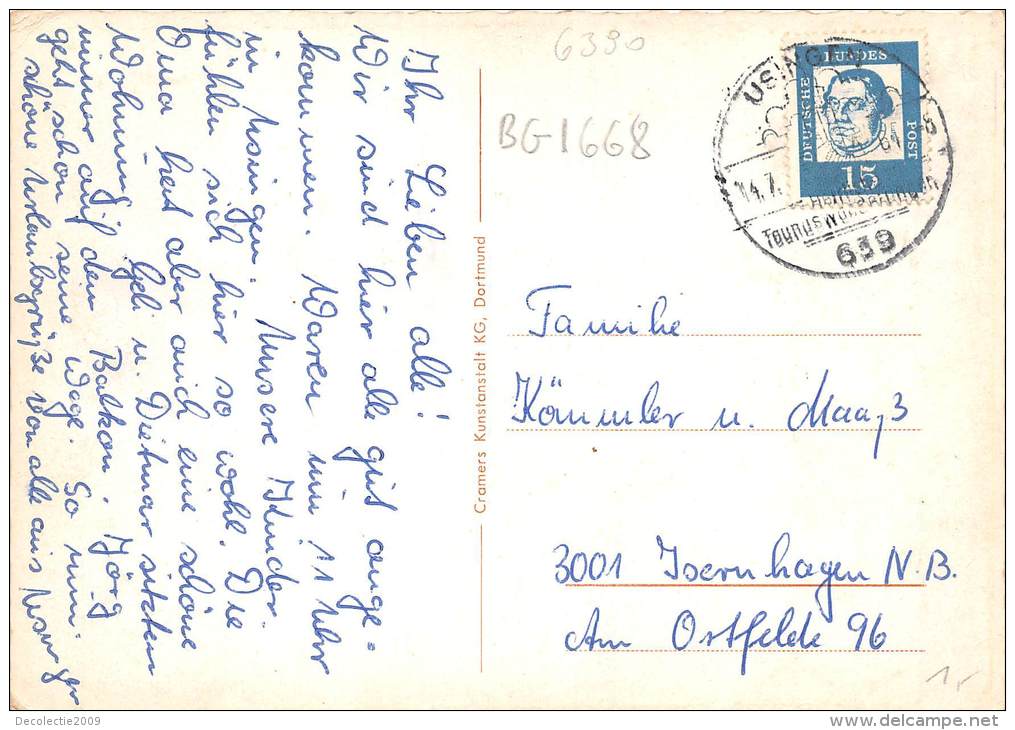 Ihr Lieben alle!
Wir sind hier alle gut ange=
kommen. Waren um 11 Uhr
in Usingen. Unsere Kinder
fühlen sich hier so wohl. Die
Oma het aber auch eine schöne
Wohnung. Geli u. Dietmar sitzten
immer auf den Balkon. Jörg
geht schon seine Wege. So nun
schöne Urlaubsgrüße von alle aus Usingen
Cramers Kunstanstalt KG, Dortmund
6390
BG-1668
USINGEN
14.7.
Taunus
639
DEUTSCHE
BUNDES
POST
15
Familie
Kämmler u. Maaz3
3001 Isernhagen N.B.
Am Ostfelde 96
Decolectie2009
www.delcampe.net